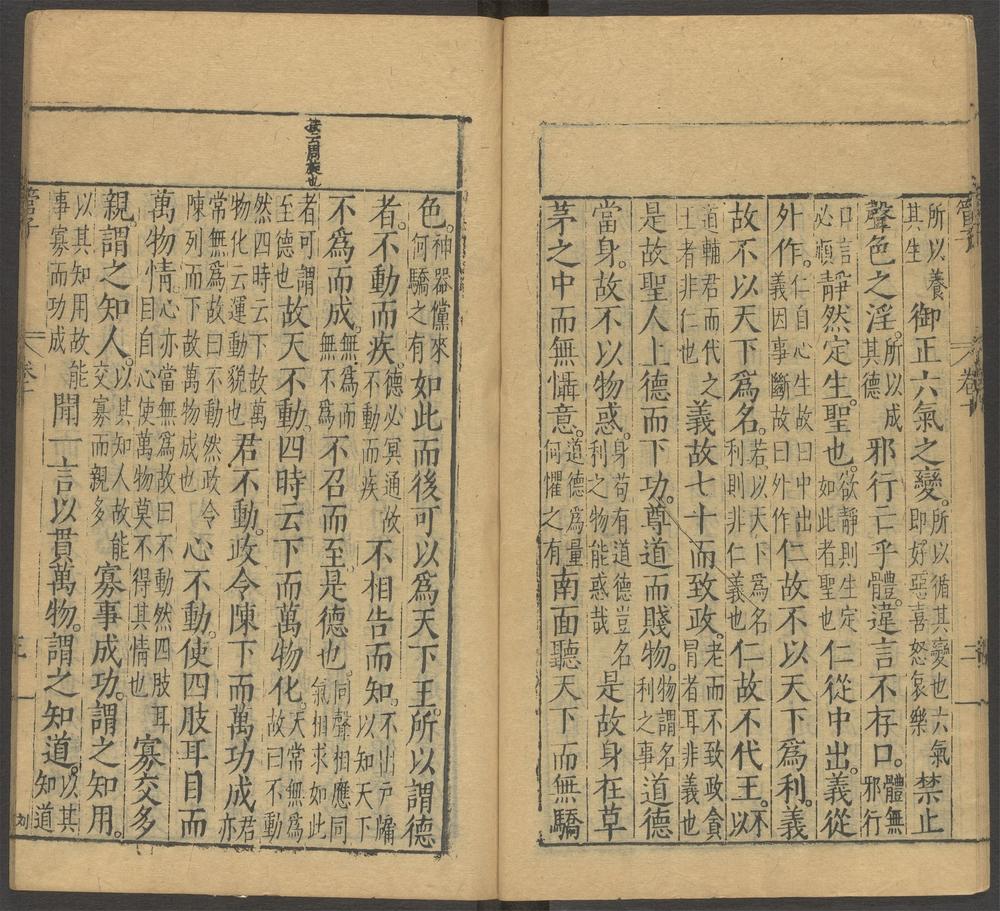 管子 卷十 二
所以養其生御正六氣之變。所以循其變也六氣即好惡喜怒哀樂禁止
聲色之淫。所以成其德邪行亡乎體。違言不存口。體無邪行
口言必順靜然定生。聖也。欲靜則生定如此者聖也仁從中出。義從
外作。仁自心生故曰中出義因事斷故曰外作仁故不以天下爲利。義
故不以天下爲名。若以天下爲名利則非仁義也仁故不代王。不以
道輔君而代之王者非仁也義故七十而致政。老而不致政貪冒者耳非義也
是故聖人上德而下功。尊道而賤物。物謂名利之事道德
當身。故不以物惑。身苟有道德豈名利之物能惑哉是故身在草
茅之中而無懾意。道德爲量何懼之有南面聽天下而無驕
色。神器儻來何驕之有如此而後可以爲天下王。所以謂德
者。不動而疾。德必冥通故不動而疾不相告而知。不出戶牖以知天下
不爲而成。無爲而無不爲不召而至。是德也。同聲相應同氣相求如此
云周旋也
者可謂至德也故天不動。四時云下而萬物化。天常無爲故曰不動
然四時云下故萬物化云運動貌也君不動。政令陳下而萬功成。君亦
常無爲故曰不動然政令陳列而下故萬物成也心不動。使四肢耳目而
萬物情。心亦當無爲故曰不動然四肢耳目自心使萬物莫不得其情也寡交多
親。謂之知人。以其知人故能交寡而親多寡事成功。謂之知用。
以其知用故能事寡而功成聞一言以貫萬物。謂之知道。以其知道
管子 卷十 三 刘